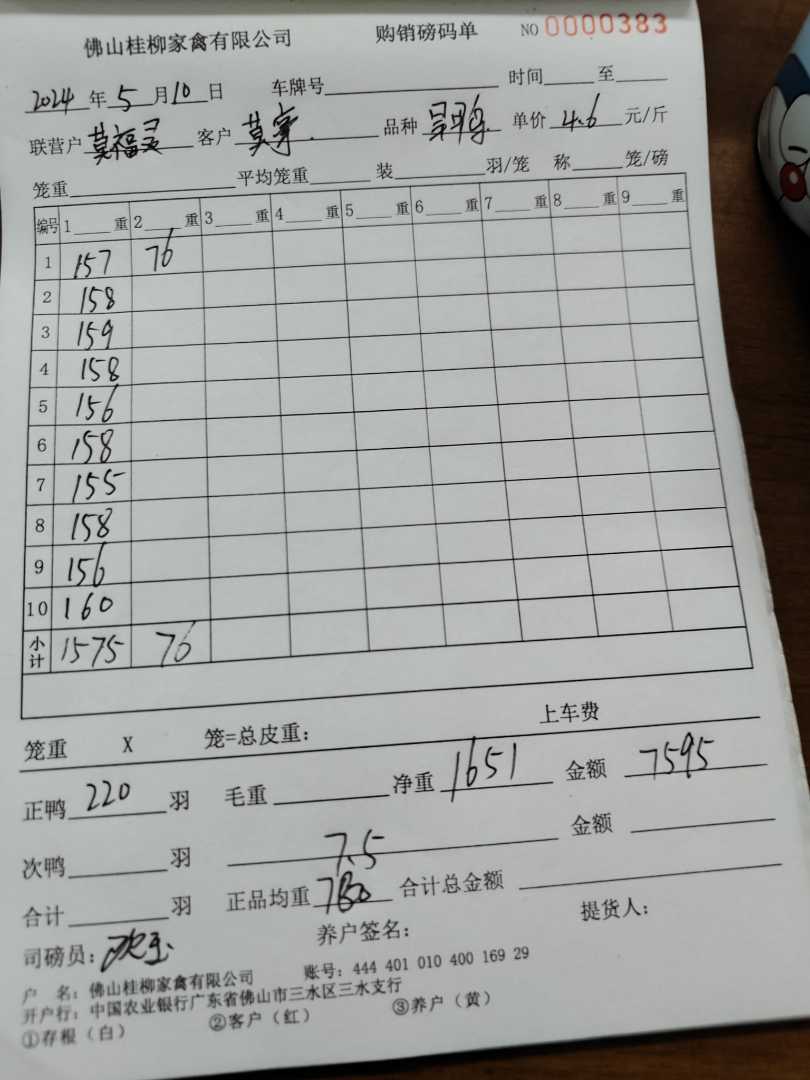 佛山桂柳家禽有限公司 购销磅码单 NO 0000383
2024 年 5 月 10 日 车牌号 时间 至
联营户 莫福灵 客户 莫 品种 单价 4.6 元/斤
笼重 平均笼重 装 羽/笼 称 笼/磅
编号 1 重 2 重 3 重 4 重 5 重 6 重 7 重 8 重 9 重
1 157 76
2 158
3 159
4 158
5 156
6 158
7 155
8 158
9 156
10 160
小计 1575 76
笼重 X 笼=总皮重: 上车费
正鸭 220 羽 毛重 净重 1651 金额 7595
次鸭 羽 7.5 金额
合计 羽 正品均重 合计总金额
司磅员: 养户签名: 提货人:
户 名: 佛山桂柳家禽有限公司 账号: 444 401 010 400 169 29
开户行: 中国农业银行广东省佛山市三水区三水支行
①存根（白） ②客户（红） ③养户（黄）